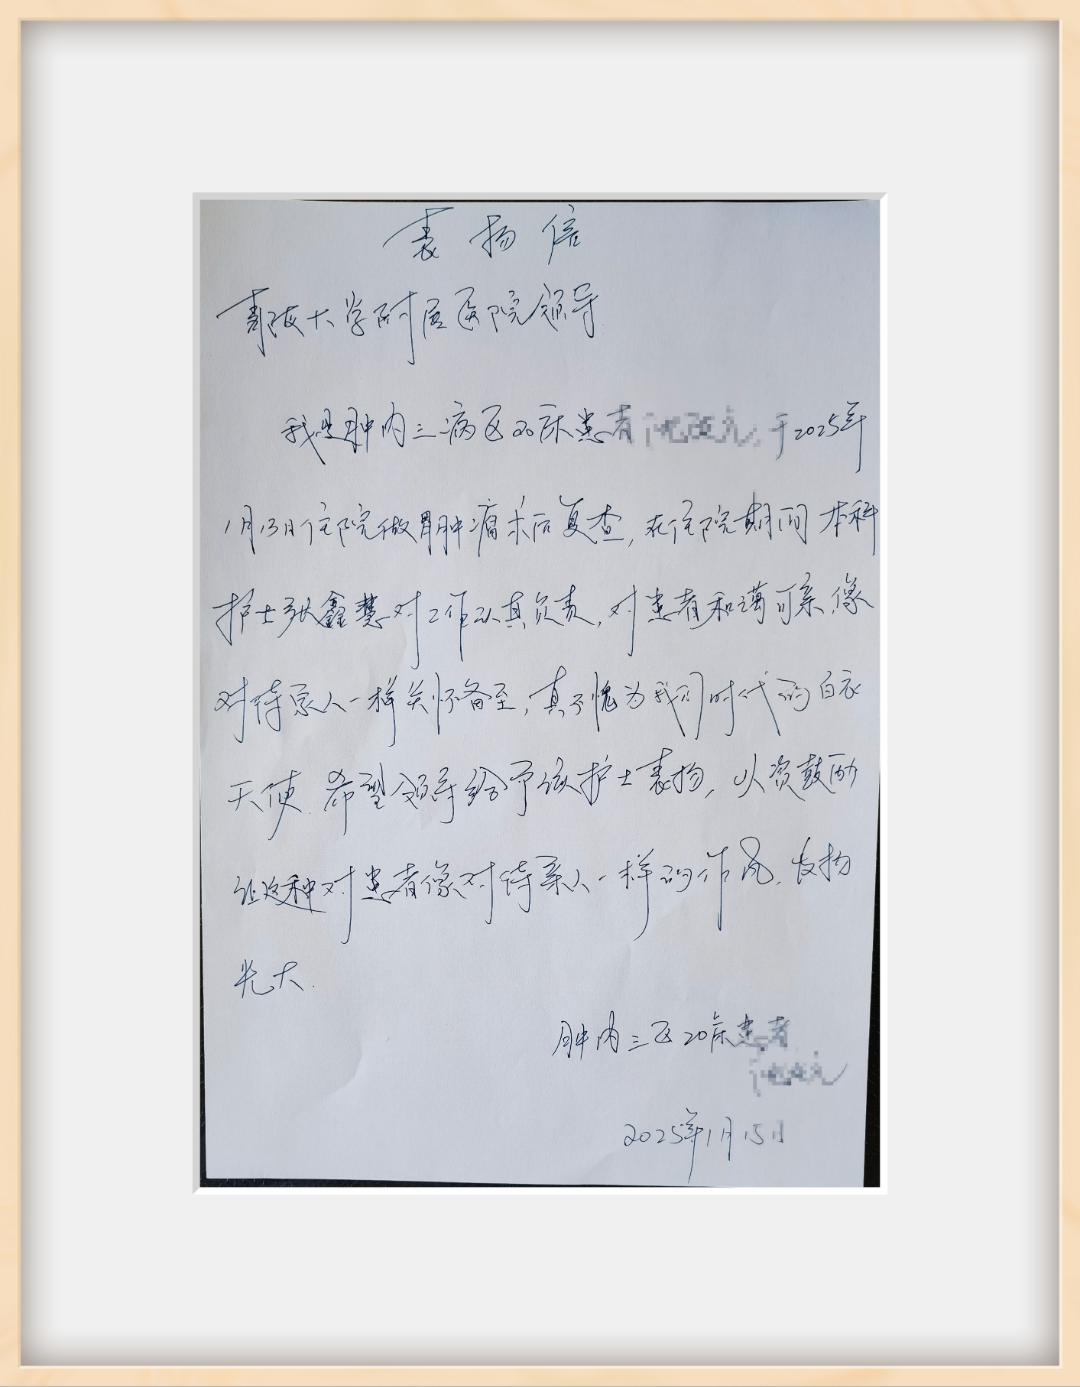 表扬信
青海大学附属医院领导
我是肿内三病区20床患者 于2025年
1月13日住院做胃肿瘤术后复查,在住院期间本科
护士张鑫慧对工作认真负责,对患者和蔼可亲,像
对待家人一样关怀备至,真不愧为我们时代的白衣
天使.希望领导给予该护士表扬,以资鼓励
让这种对患者像对待亲人一样的作风,发扬
光大.
肿内三区20床患者
2025年1月15日